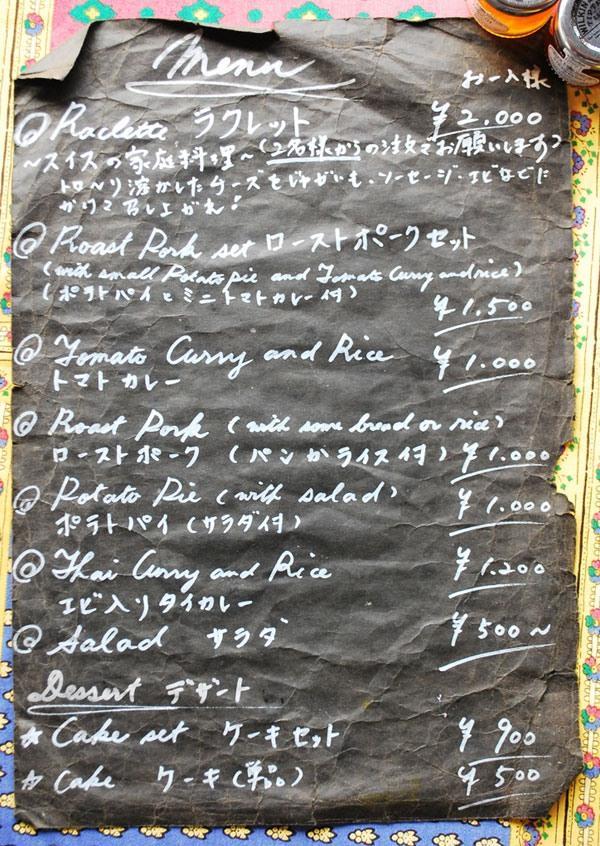 Menu
お一人様
Raclette ラクレット ¥2.000
~スイスの家庭料理~ (2名様からの注文でお願いします)
トロ~リ溶かしたチーズをじゃがいも・ソーセージ・エビなどに
かけて召し上がれ!
Roast Pork set ローストポークセット
(with small Potato pie and Tomato Curry and rice)
(ポテトパイとミニトマトカレー付)
¥1.500
Tomato Curry and Rice ¥1.000
トマトカレー
Roast Pork (with some bread or rice)
ローストポーク (パンかライス付) ¥1.000
Potato Pie (with salad) ¥1.000
ポテトパイ (サラダ付)
Thai Curry and Rice ¥1.200
エビ入りタイカレー
Salad サラダ ¥500~
Dessert デザート
☆ Cake set ケーキセット ¥900
☆ Cake ケーキ(単品) ¥500